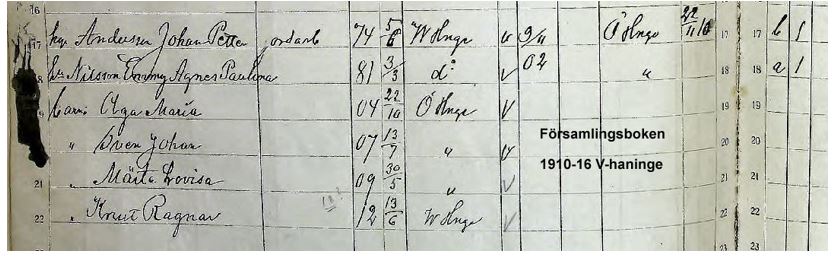 16
17 Andersson Johan Petter jordarb 74 5/6 W Hnge v 9/11 Ö Hnge 22/11 10 17 17 b 1
18 Nilsson Emmy Agnes Paulina 81 3/3 d:o v 02 " 18 18 a 1
barn: Olga Maria 04 22/10 Ö Hnge v 19 19
" Sven Johan 07 13/7 " v Församlingsboken 20 20
21 " Märta Lovisa 09 30/5 " v 1910-16 V-haninge 21 21
22 " Knut Ragnar 12 13/6 W Hnge v 22 22
23 23